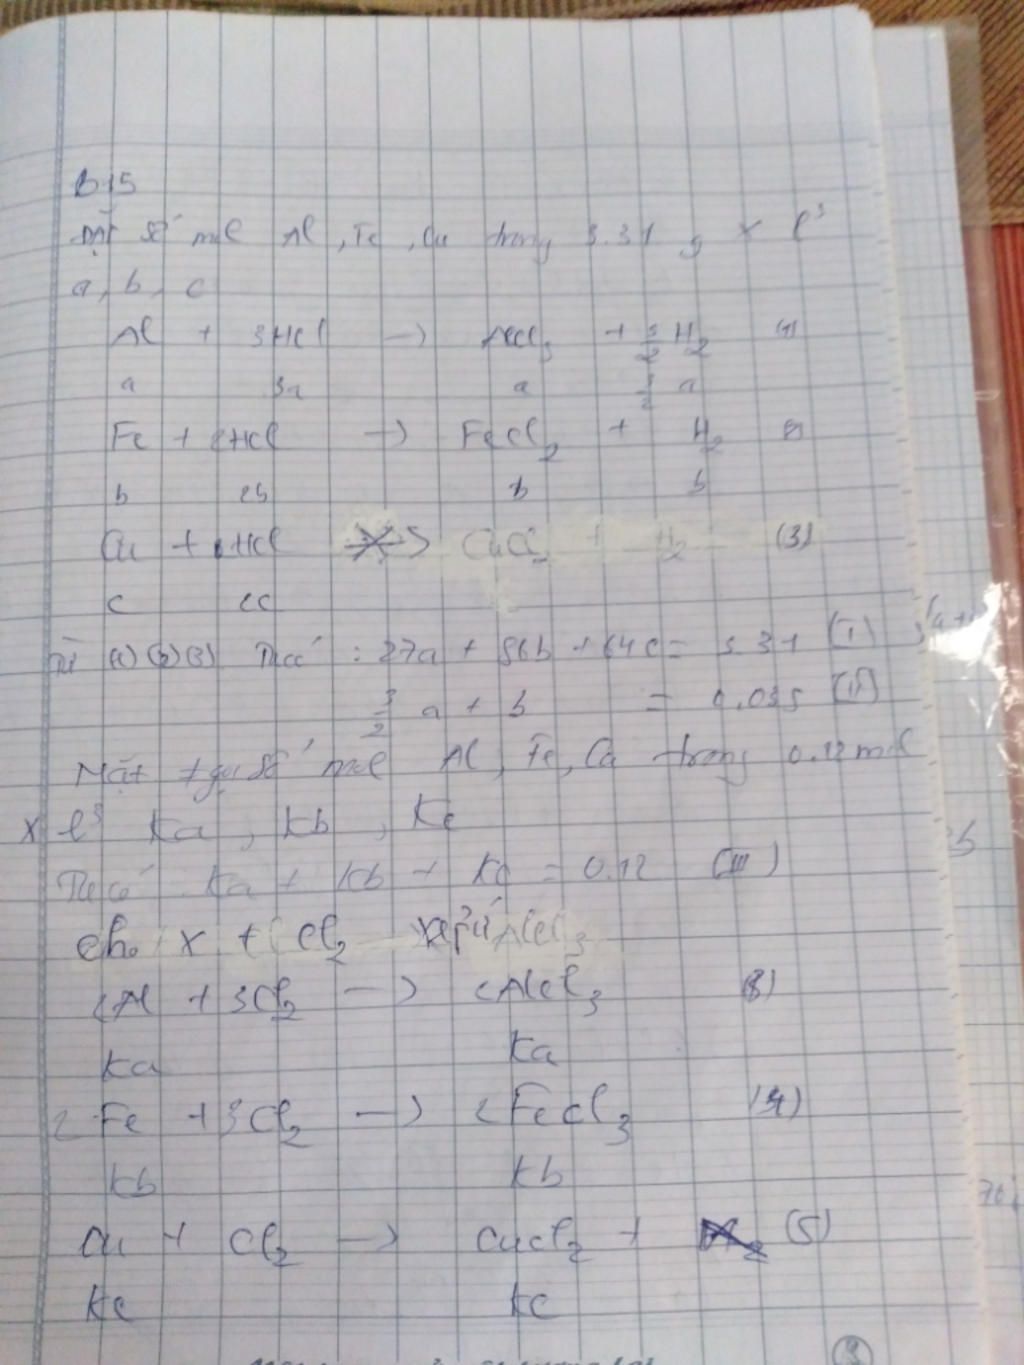 B15
Đặt số mol Al, Fe, Cu trong 3.31 g X l³
a, b, c
Al + 3HCl → AlCl3 + 3/2 H2 (1)
a 3a a 3/2 a
Fe + 2HCl → FeCl2 + H2 (2)
b 2b b b
Cu + HCl CuCl2 + H2 (3)
c 2c
Từ (1) (2) (3) Ta có : 27a + 56b + 64c = 3.31 (I)
3/2 a + b = 0.035 (II)
Mặt + gọi số mol Al, Fe, Cu trong 0.12 mol
X l³ Ka, Kb, Kc
Ta có Ka + Kb + Kc = 0.12 (III)
cho X + Cl2 AlCl3
2Al + 3Cl2 → 2AlCl3 (3)
Ka Ka
2Fe + 3Cl2 → 2FeCl3 (4)
Kb Kb
Cu + Cl2 → CuCl2 + (5)
Kc Kc